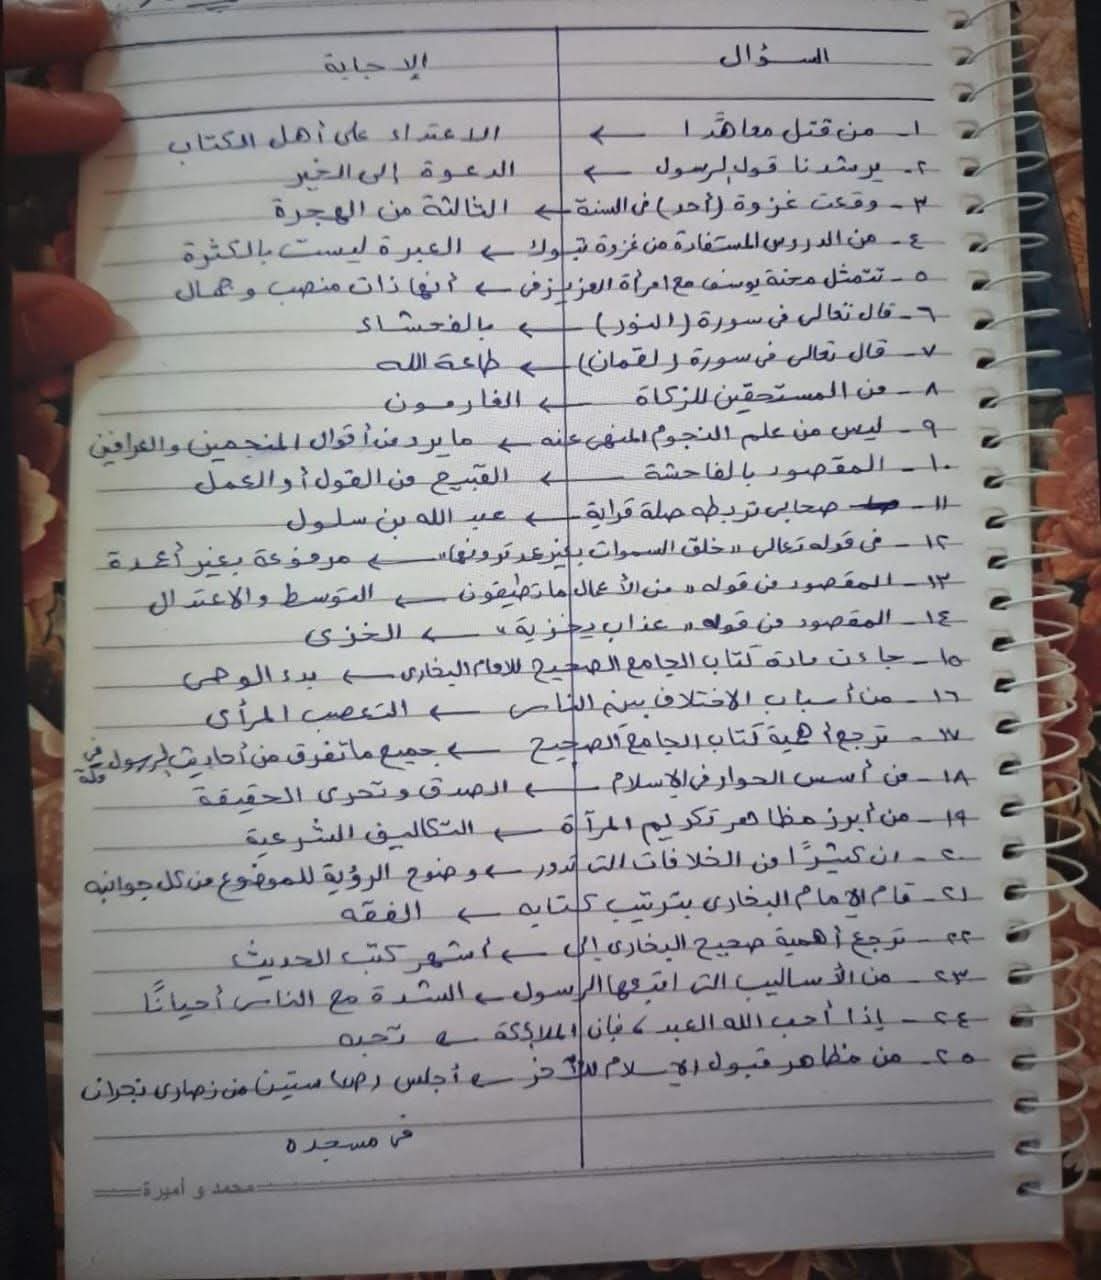 السؤال الإجابة
١- من قتل معاهدًا ← الاعتداء على أهل الكتاب
٢- يرشدنا قول الرسول ← الدعوة إلى الخير
٣- وقعت غزوة (أحد) في السنة ← الثالثة من الهجرة
٤- من الدروس المستفادة من غزوة تبوك ← العبرة ليست بالكثرة
٥- تتمثل محنة يوسف مع امرأة العزيز في ← أنها ذات منصب وجمال
٦- قال تعالى في سورة (النور) ← بالفحشاء
٧- قال تعالى في سورة (لقمان) ← طاعة الله
٨- من المستحقين للزكاة ← الغارمون
٩- ليس من علم النجوم المنهى عنه ← ما يرد من أقوال المنجمين والعرافين
١٠- المقصود بالفاحشة ← القبيح من القول أو العمل
١١- صحابى تربطه صلة قرابة ← عبد الله بن سلول
١٢- في قوله تعالى «خلق السموات بغير عمد ترونها» ← مرفوعة بغير أعمدة
١٣- المقصود من قوله «من الأعمال ما تطيقون ← التوسط والاعتدال
١٤- المقصود من قوله «عذاب يخزية» ← الخزى
١٥- جاءت مادة كتاب الجامع الصحيح للامام البخارى ← بدء الوحى
١٦- من أسباب الاختلاف بين الناس ← التعصب المرأى
١٧- ترجع أهمية كتاب الجامع الصحيح ← جميع ما تفرق من أحاديث الرسول في
١٨- من أسس الحوار في الإسلام ← الصدق وتحرى الحقيقة
١٩- من أبرز مظاهر تكريم المرآة ← التكاليف الشرعية
٢٠- ان كثيرًا من الخلافات التى تدور ← وضوح الرؤية للموضوع من كل جوانبه
٢١- قام الإمام البخارى بترتيب كتابه ← الفقه
٢٢- ترجع أهمية صحيح البخارى إلى ← أشهر كتب الحديث
٢٣- من الأساليب التى اتبعها الرسول ← الشدة مع الناس أحيانًا
٢٤- إذا أحب الله العبد، فإن الملائكة ← تحبه
٢٥- من مظاهر قبول الإسلام للآخر ← أجلس ستين من نصارى نجران
في مسجده
محمد و أميرة